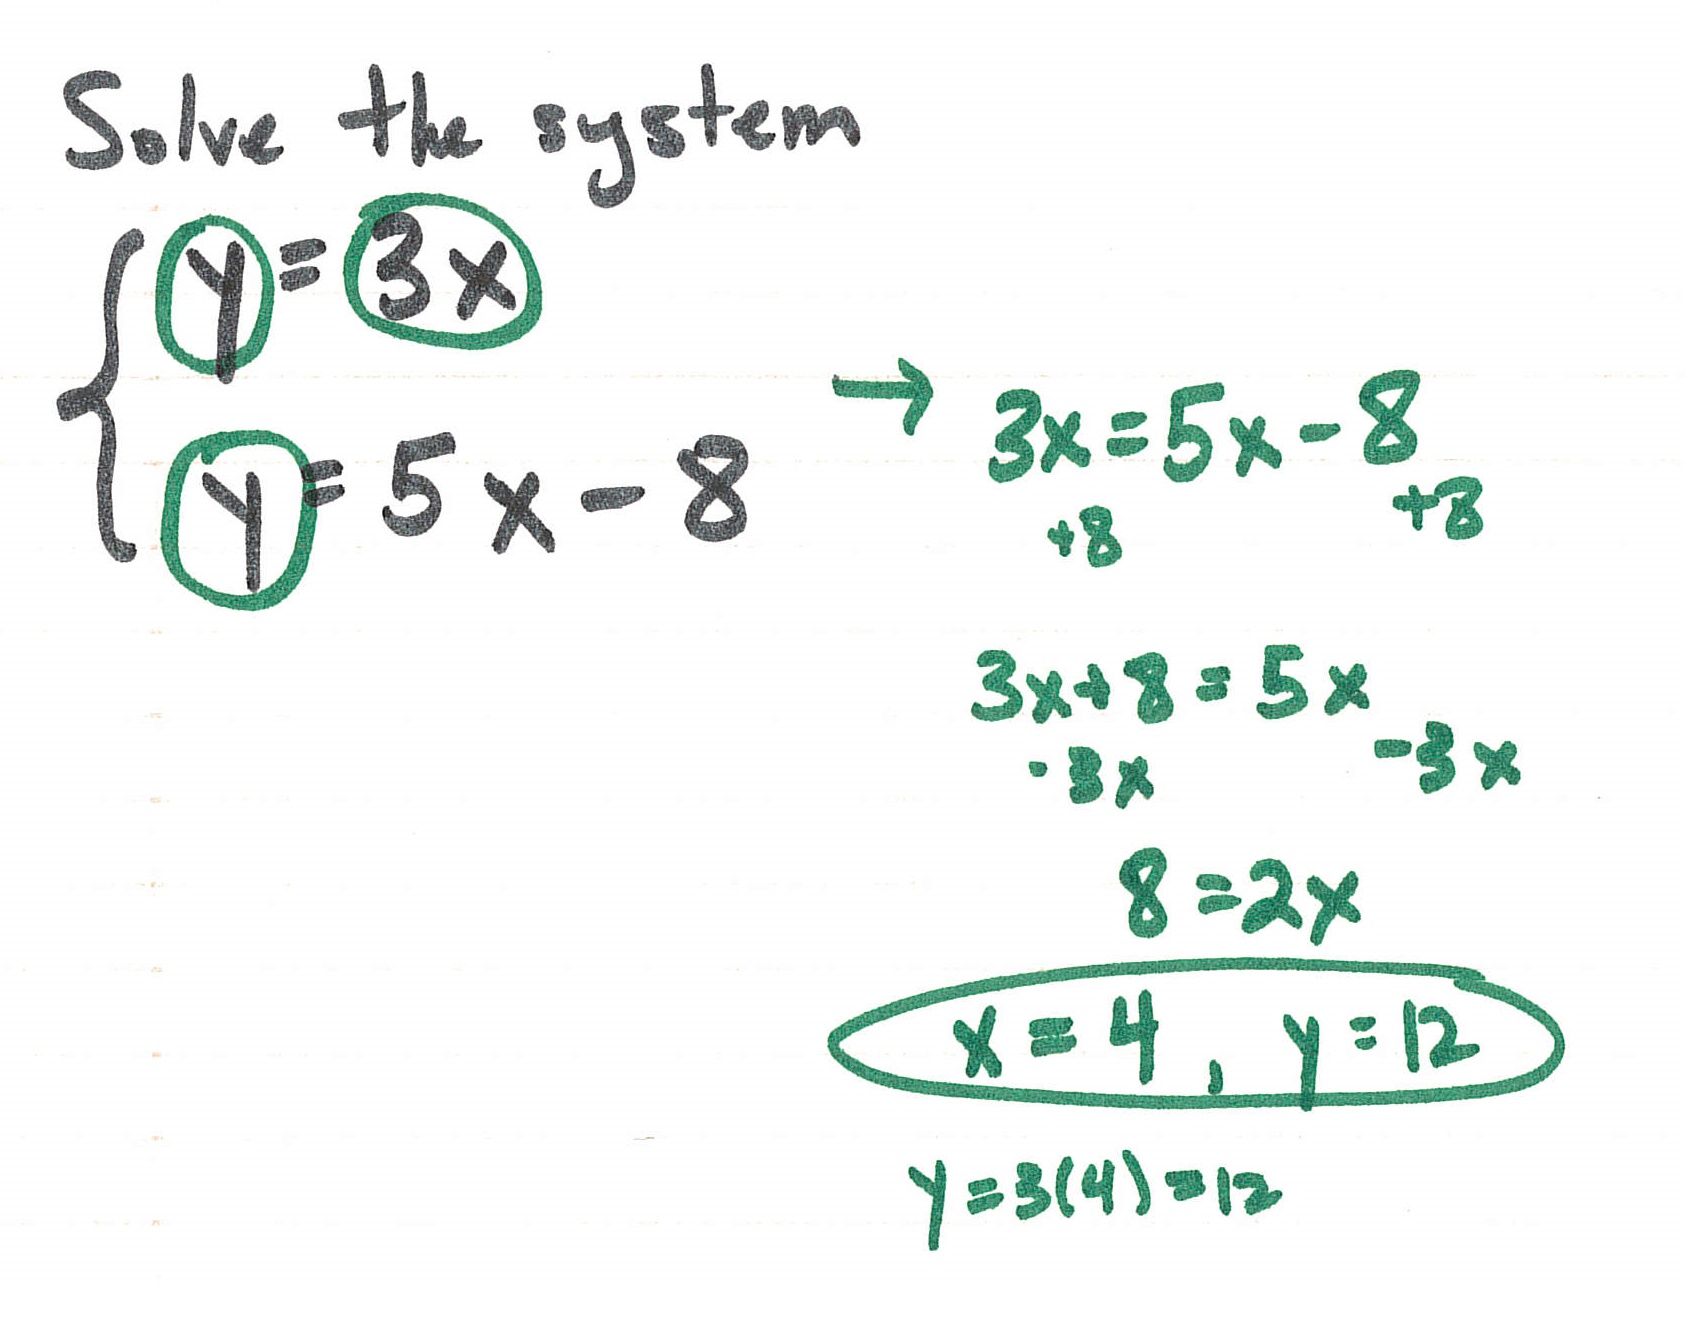 Solve the system
y = 3x
y = 5x - 8
→ 3x = 5x - 8
+8 +8
3x + 8 = 5x
-3x -3x
8 = 2x
x = 4, y = 12
y = 3(4) = 12